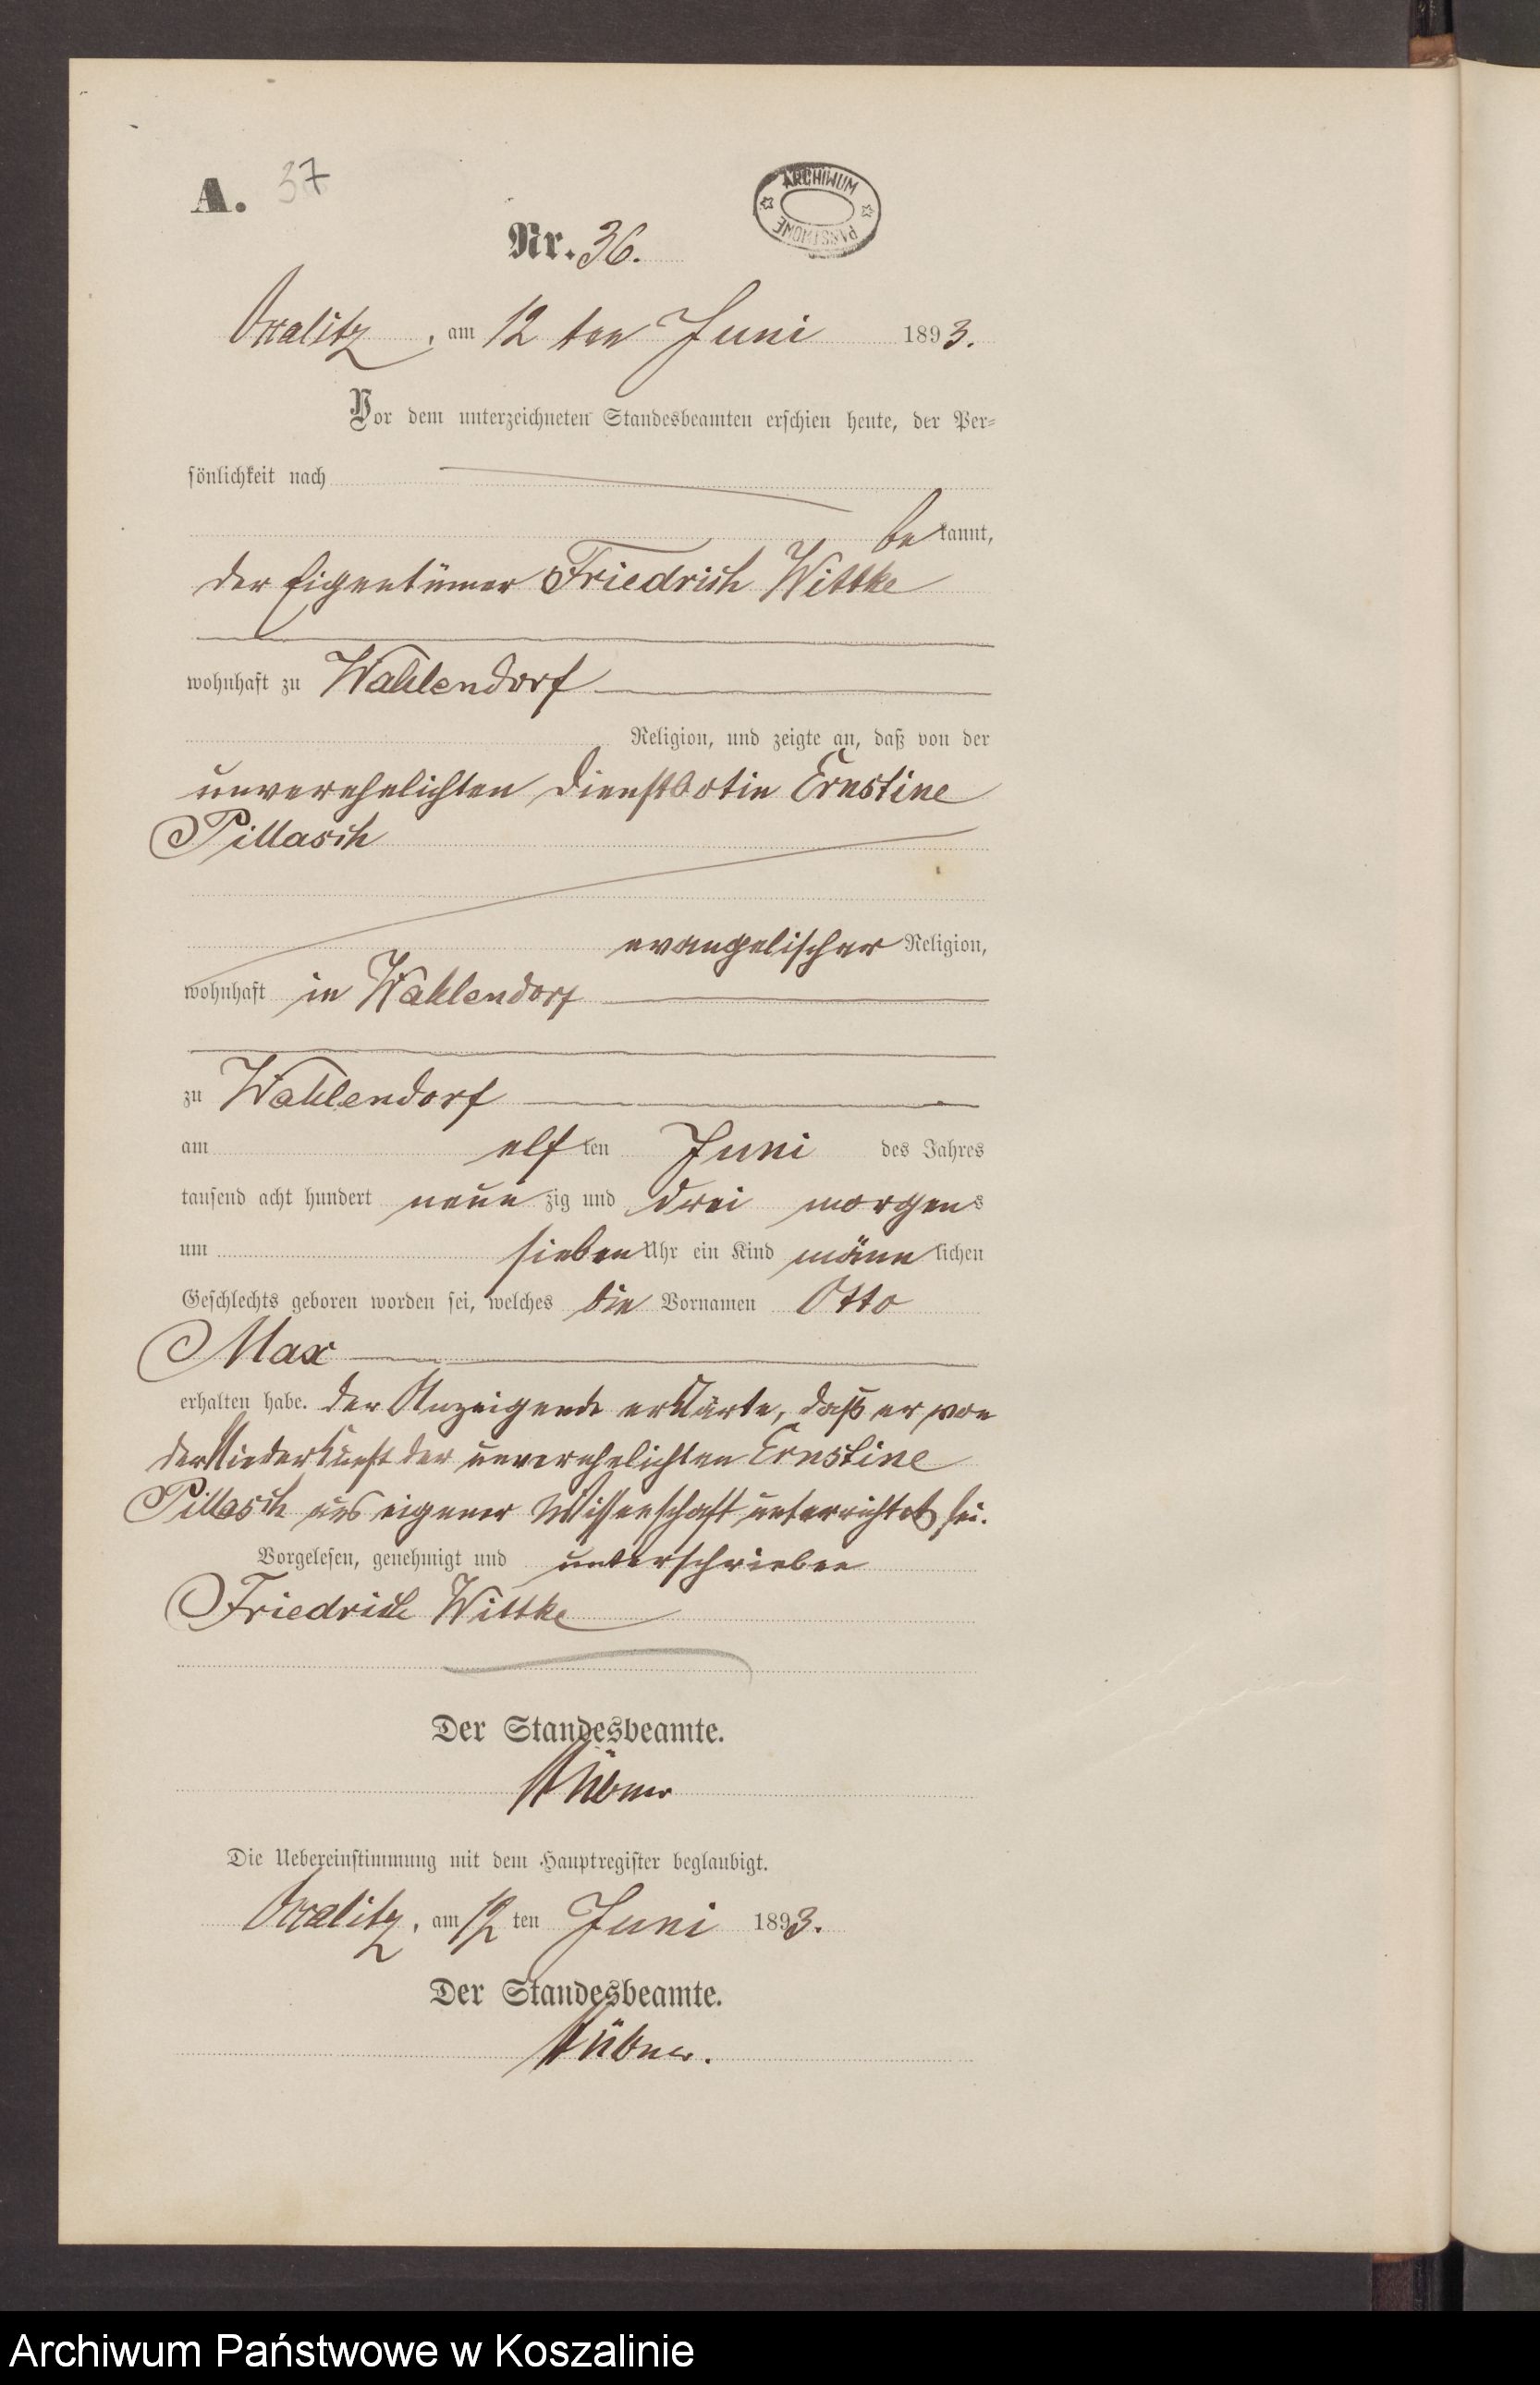 A. 37
ARCHIWUM PAŃSTWOWE
Nr. 36.
am 12 ten Juni 1893.
Vor dem unterzeichneten Standesbeamten erschien heute, der Per-
sönlichkeit nach
be kannt,
der Eigentümer Friedrich Wittke
wohnhaft zu Wahlendorf
Religion, und zeigte an, daß von der
unverehelichten Dienstbotin Ernstine
Pillasch
evangelischer Religion,
wohnhaft in Wahlendorf
zu Wahlendorf
am elf ten Juni des Jahres
tausend acht hundert neun zig und drei morgens
um sieben Uhr ein Kind männ lichen
Geschlechts geboren worden sei, welches die Vornamen Otto
Max
erhalten habe. Der Anzeigende erklärte, daß er von
der Niederkunft der unverehelichten Ernstine
Pillasch aus eigener Wissenschaft unterrichtet sei.
Vorgelesen, genehmigt und unterschrieben
Friedrich Wittke
Der Standesbeamte.
Die Uebereinstimmung mit dem Hauptregister beglaubigt.
am 12 ten Juni 1893.
Der Standesbeamte.
Archiwum Państwowe w Koszalinie